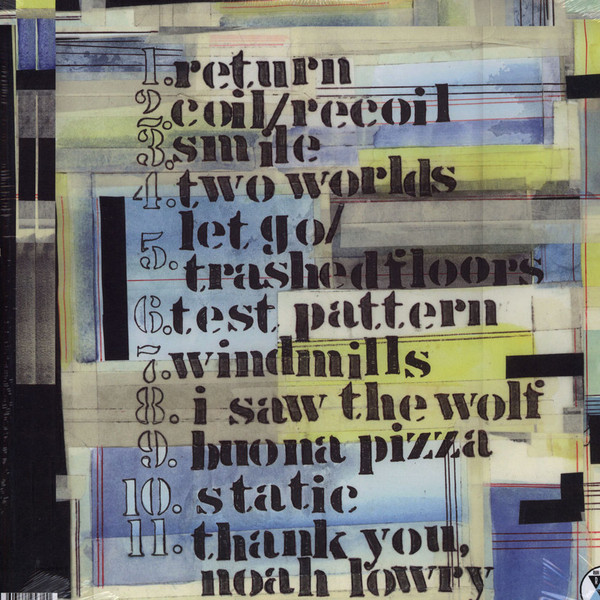 1. return
2. coil/recoil
3. smile
4. two worlds
5. let go/
trashed floors
6. test pattern
7. windmills
8. i saw the wolf
9. buona pizza
10. static
11. thank you,
noah lowry